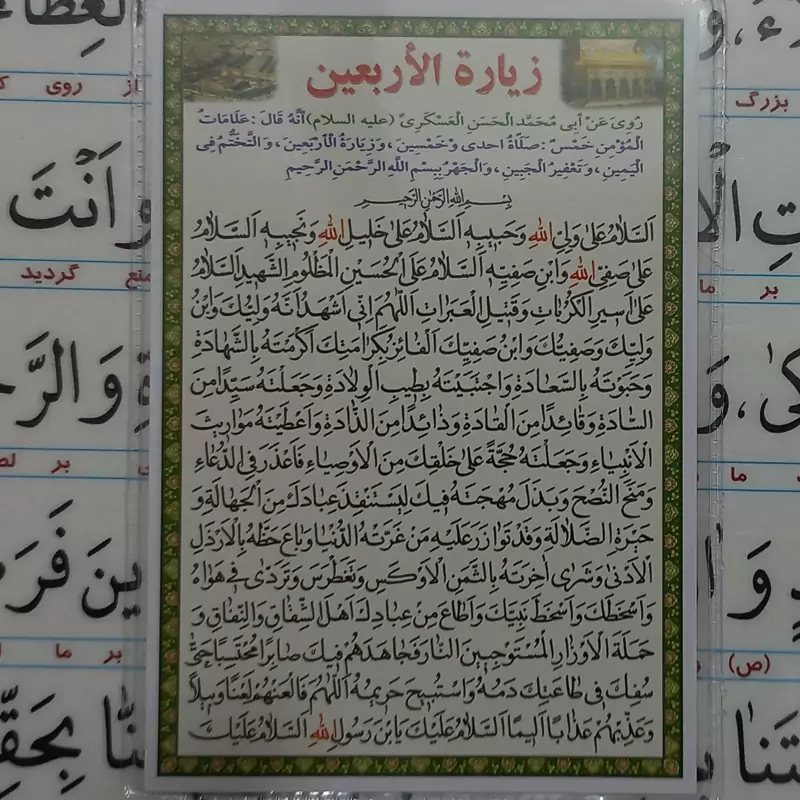 زيارة الأربعين
رُوِىَ عَنْ اَبى مُحَمَّدٍ الْحَسَنِ الْعَسْكَرِىِّ (عليه السلام) اَنَّهُ قَالَ: عَلَامَاتُ
الْمُؤْمِنِ خَمْسٌ: صَلَاةُ احدى وَخَمْسينَ، وَزِيارَةُ الْاَرْبَعينَ، وَالتَّخَتُّمُ فِى
الْيَمينِ، وَتَعْفيرُ الْجَبينِ، وَالْجَهْرُ بِبِسْمِ اللَّهِ الرَّحْمَنِ الرَّحيمِ
بِسْمِ اللهِ الرَّحْمٰنِ الرَّحيمِ
اَلسَّلامُ عَلى وَلِىِّ اللهِ وَحَبيبِهِ اَلسَّلامُ عَلى خَليلِ اللهِ وَنَجيبِهِ اَلسَّلامُ
عَلى صَفِىِّ اللهِ وَابْنِ صَفِيِّهِ اَلسَّلامُ عَلَى الْحُسَيْنِ الْمَظْلُومِ الشَّهيدِ اَلسَّلامُ
عَلى اَسيرِ الْكُرُباتِ وَقَتيلِ الْعَبَراتِ اَللّهُمَّ اِنّى اَشْهَدُ اَنَّهُ وَلِيُّكَ وَابْنُ
وَلِيِّكَ وَصَفِيُّكَ وَابْنُ صَفِيِّكَ الْفائِزُ بِكَرامَتِكَ اَكْرَمْتَهُ بِالشَّهادَةِ
وَحَبَوْتَهُ بِالسَّعادَةِ وَاجْتَبَيْتَهُ بِطيبِ الْوِلادَةِ وَجَعَلْتَهُ سَيِّدًا مِنَ
السّادَةِ وَقائِدًا مِنَ الْقادَةِ وَذائِدًا مِنَ الذّادَةِ وَاَعْطَيْتَهُ مَواريثَ
الْاَنْبِياءِ وَجَعَلْتَهُ حُجَّةً عَلى خَلْقِكَ مِنَ الْاَوْصِياءِ فَاَعْذَرَ فِى الدُّعاءِ
وَمَنَحَ النُّصْحَ وَبَذَلَ مُهْجَتَهُ فيكَ لِيَسْتَنْقِذَ عِبادَكَ مِنَ الْجَهالَةِ وَ
حَيْرَةِ الضَّلالَةِ وَقَدْ تَوازَرَ عَلَيْهِ مَنْ غَرَّتْهُ الدُّنْيا وَباعَ حَظَّهُ بِالْاَرْذَلِ
الْاَدْنى وَشَرى اخِرَتَهُ بِالثَّمَنِ الْاَوْكَسِ وَتَغَطْرَسَ وَتَرَدّى فى هَواهُ
وَاَسْخَطَكَ وَاَسْخَطَ نَبِيَّكَ وَاَطاعَ مِنْ عِبادِكَ اَهْلَ الشِّقاقِ وَالنِّفاقِ وَ
حَمَلَةَ الْاَوْزارِ الْمُسْتَوْجِبينَ النّارَ فَجاهَدَهُمْ فيكَ صابِرًا مُحْتَسِبًا حَتّى
سُفِكَ فى طاعَتِكَ دَمُهُ وَاسْتُبيحَ حَريمُهُ اَللّهُمَّ فَالْعَنْهُمْ لَعْنًا وَبيلًا
وَعَذِّبْهُمْ عَذابًا اَليمًا اَلسَّلامُ عَلَيْكَ يَا بْنَ رَسُولِ اللهِ اَلسَّلامُ عَلَيْكَ
از روی
بزرگ
وَ اَنْتَ
منع گردید
بر ما
ةِ وَالرَّ
بر
ما
ینَ فَرَ
بر ما
(ص)
بِحَقِّ